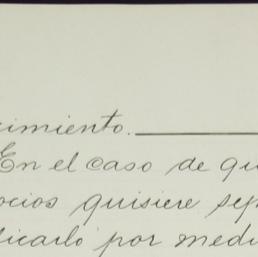 cimiento.
En el caso de qu
ocios quisiere sep
licarló por medi